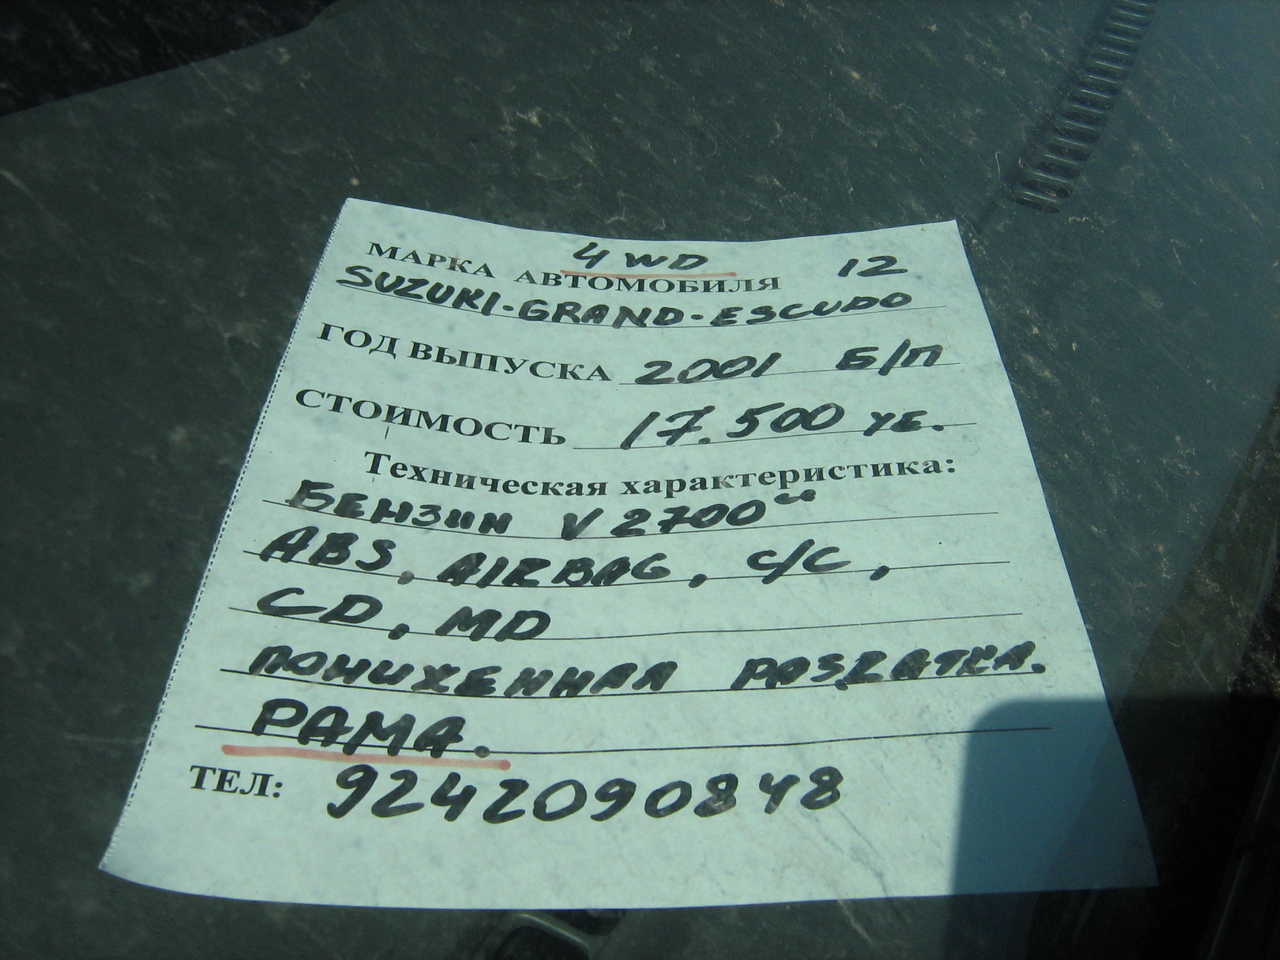 4WD 12
МАРКА АВТОМОБИЛЯ
SUZUKI-GRAND-ESCUDO
ГОД ВЫПУСКА 2001 Б/П
СТОИМОСТЬ 17.500 УЕ.
Техническая характеристика:
БЕНЗИН V2700
ABS, AIRBAG, С/С,
CD, MD
ПОНИЖЕННАЯ РАЗДАТКА.
РАМА.
ТЕЛ: 9242090848